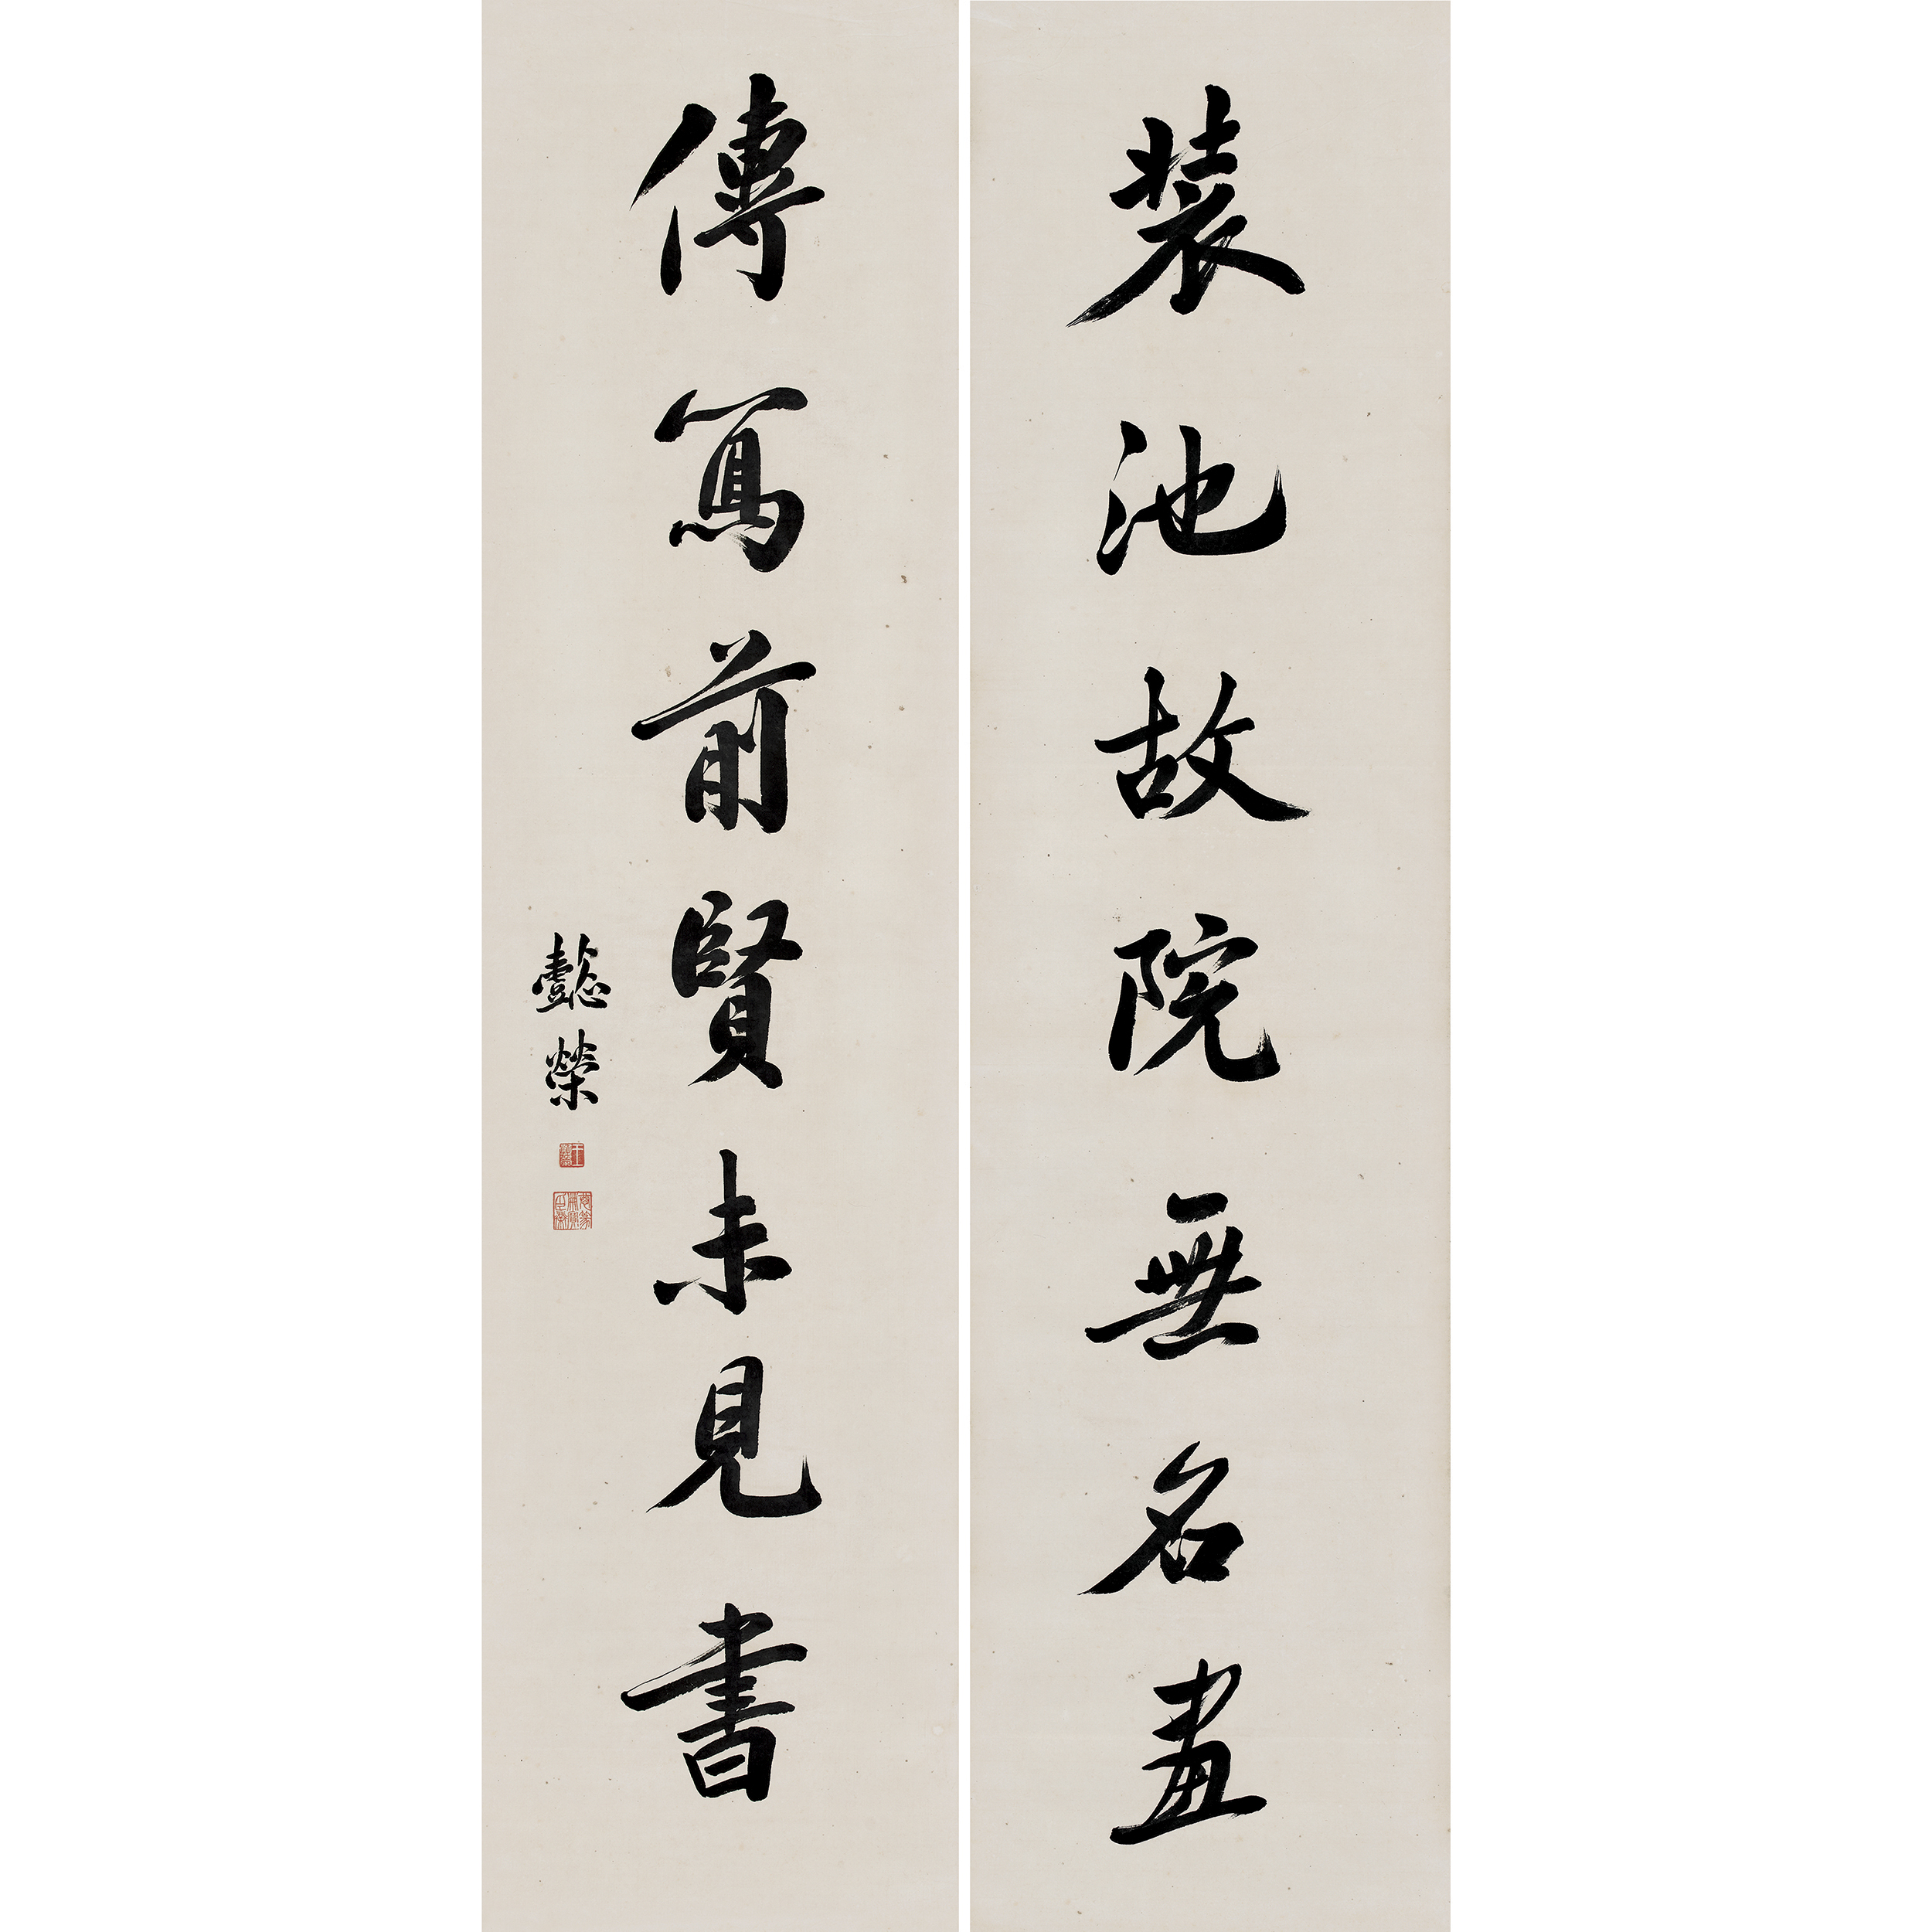 裝池故院無名畫
傳寫前賢未見書
懿榮